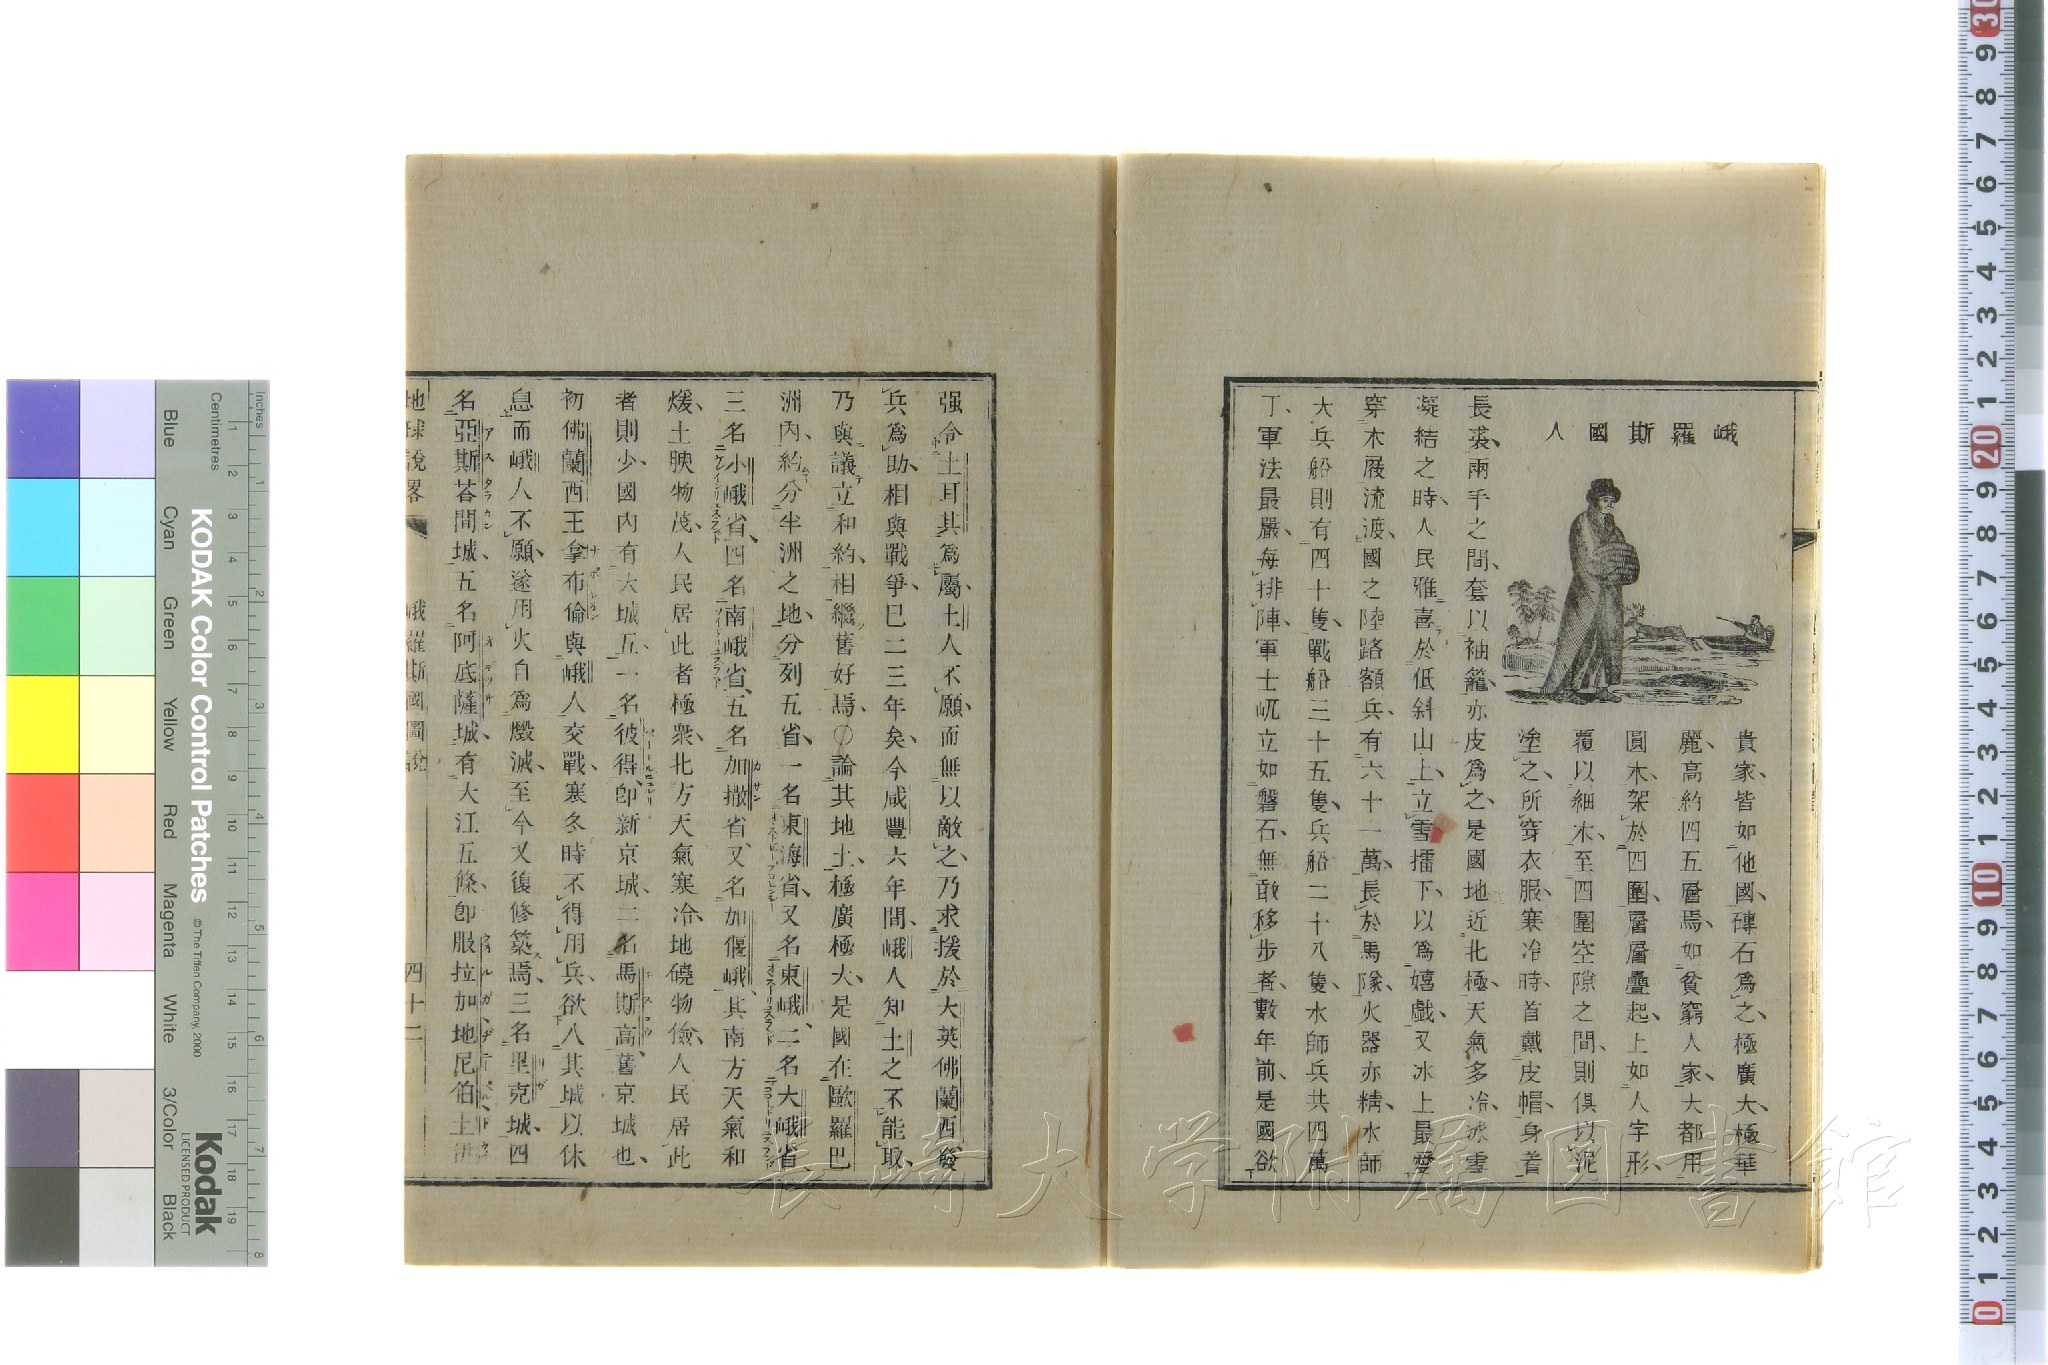 峨羅斯國人
貴家、皆如他國、磚石爲之、極廣大、極華
麗、高約四五層焉、如貧窮人家、大都用
圓木、架於四圍、層層疊起、上如人字形、
覆以細木、至四圍空隙之間、則俱以泥
塗之、所穿衣服、寒冷時、首戴皮帽、身着
長裘、兩手之間、套以袖籠、亦皮爲之、是國地近北極、天氣多冷、冰雪
凝結之時、人民雅喜於低斜山上、立雪擂下、以爲嬉戲、又冰上最愛
穿木屐流渡、國之陸路額兵、有六十一萬、長於馬隊、火器亦精、水師
大兵船則有四十隻、戰船三十五隻、兵船二十八隻、水師兵共四萬
丁、軍法最嚴、每排陣、軍士屼立如磐石、無敢移步者、數年前、是國欲
强令土耳其爲屬、土人不願而無以敵之、乃求援於大英佛蘭西發
兵爲助、相與戰爭、巳二三年矣、今咸豐六年間、峨人知土之不能取、
乃與議立和約、相繼舊好焉、〇論其地土、極廣極大、是國在歐羅巴
洲內、約分半洲之地、分列五省、一名東海省、又名東峨、二名大峨省、
三名小峨省、四名南峨省、五名加撒省、又名加偃峨、其南方天氣和
煖、土腴物茂、人民居此者極衆、北方天氣寒冷、地磽物儉、人民居此
者則少、國內有大城五、一名彼得、卽新京城、二名馬斯高、舊京城也、
初佛蘭西王拿布倫與峨人交戰、寒冬時不得用兵、欲入其城以休
息而峨人不願、遂用火自爲燬滅、至今又復修築焉、三名里克城、四
名亞斯荅間城、五名阿底薩城、有大江五條、卽服拉加地尼伯土
地球說畧
峨羅斯國圖說
四十二
長崎大学附属図書館
KODAK Color Control Patches
© The Tiffen Company, 2000
Kodak
LICENSED PRODUCT
Inches
Centimetres
Blue
Cyan
Green
Yellow
Red
Magenta
White
3/Color
Black